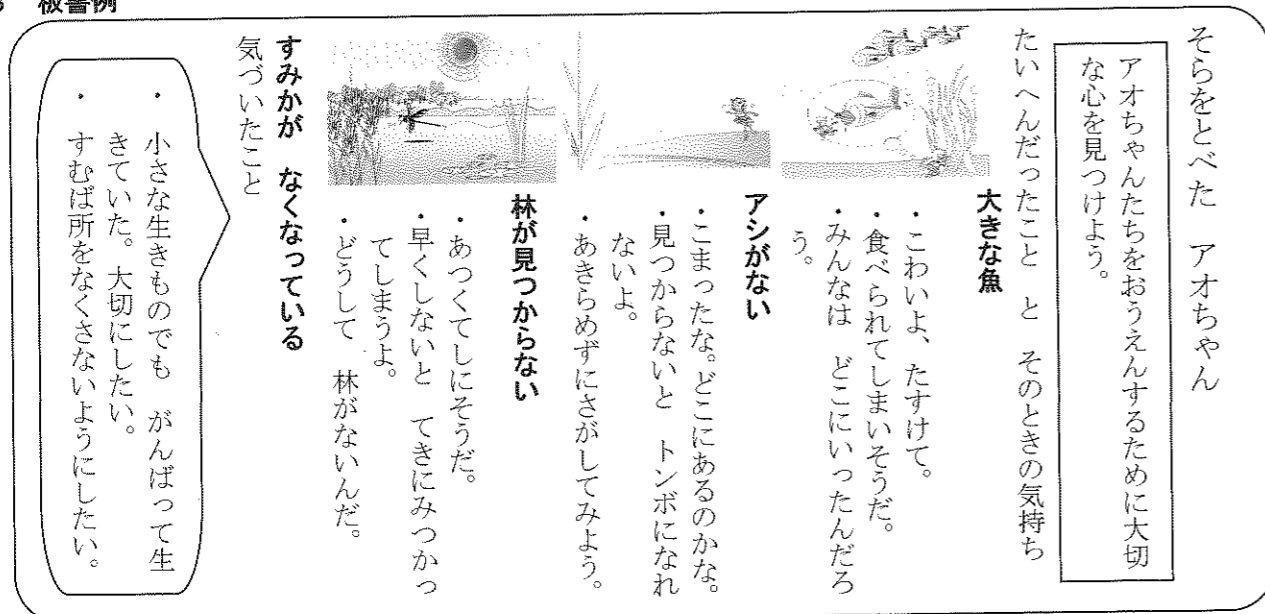 板書例
そらをとべた　アオちゃん
アオちゃんたちをおうえんするために大切
な心を見つけよう。
たいへんだったこと　と　そのときの気持ち
大きな魚
・こわいよ、たすけて。
・食べられてしまいそうだ。
・みんなは　どこにいったんだろ
う。
アシがない
・こまったな。どこにあるのかな。
・見つからないと　トンボになれ
ないよ。
・あきらめずにさがしてみよう。
林が見つからない
・あつくてしにそうだ。
・早くしないと　てきにみつかっ
てしまうよ。
・どうして　林がないんだ。
すみかが　なくなっている
気づいたこと
・小さな生きものでも　がんばって生
きていた。大切にしたい。
・すむば所をなくさないようにしたい。